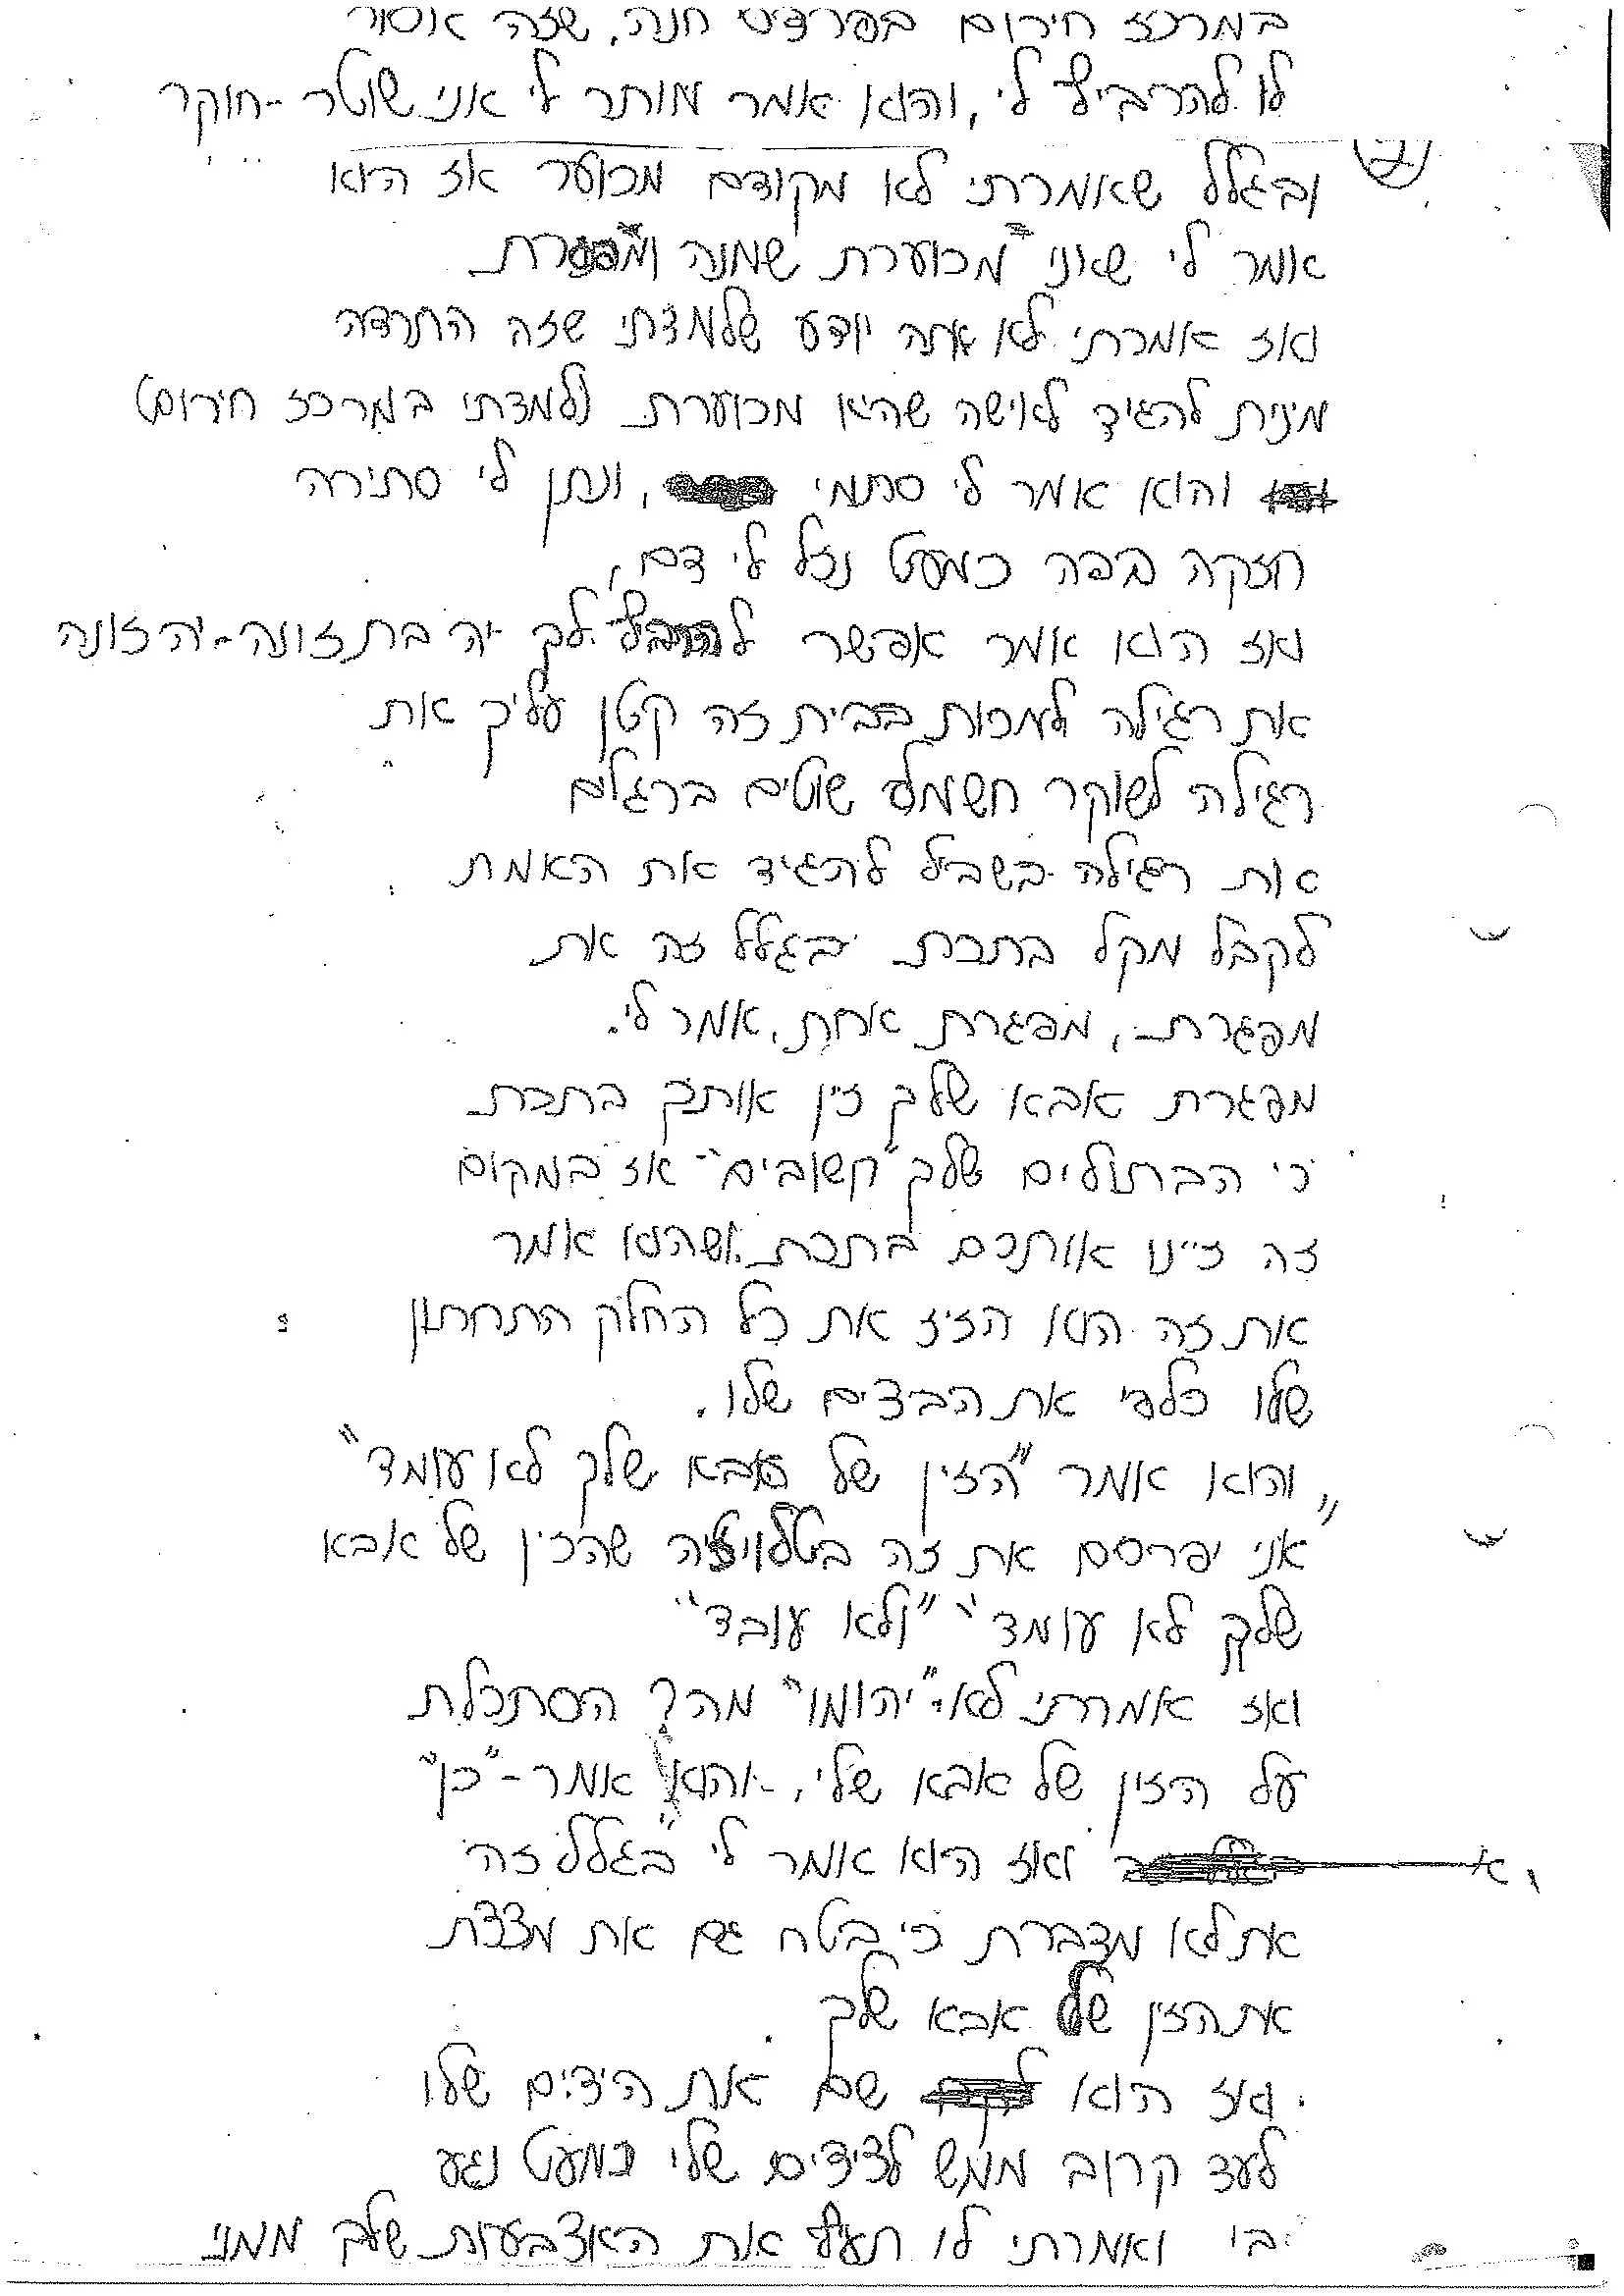 במרכז חירום בפרדס חנה, שזה אסור
לו להרביץ לי, והוא אמר מותר לי אני שוטר-חוקר
ובגלל שאמרתי לא מקודם מכוער אז הוא
אמר לי שאני מכוערת שמנה ומפגרת
ואז אמרתי לא אתה יודע שלמדתי שזה התרדה
מינית להגיד לאישה שהיא מכוערת (למדתי במרכז חירום)
והוא אמר לי סתמי , ונתן לי סתירה
חזקה בפה כמעט נזל לי דם,
ואז הוא אמר אפשר להרביץ לך יה בת זונה-יה זונה
את רגילה למכות בבית זה קטן עליך את
רגילה לשוקר חשמלי שוטים ברגלים
את רגילה בשביל להגיד את האמת
לקבל מקל בתכת בגלל זה את
מפגרת, מפגרת אחת, אמר לי.
מפגרת אבא שלך זין אותך בתכת
כי הבתולים שלך "קשובים" אז במקום
זה זיינו אותכם בתכת. ושהוא אמר
את זה הוא הזיז את כל החלק התחתון
שלו כלפי את הבצים שלו.
והוא אמר "הזין של אבא שלך לא עומד"
"אני יפרסם את זה בטלויזיה שהזין של אבא
שלך לא עומד" "ולא עובד"
ואז אמרתי לא "יהומו" מה? הסתכלת
על הזין של אבא שלי, והוא אמר-"כן"
ואז הוא אמר לי "בגלל זה
את לא מדברת כי בטח גם את מצצת
את הזין של אבא שלך
ואז הוא שם את הידים שלו
לעד קרוב ממש לצידים שלי כמעט נגע
בי ואמרתי לו תעיף את האצבעות שלך ממני